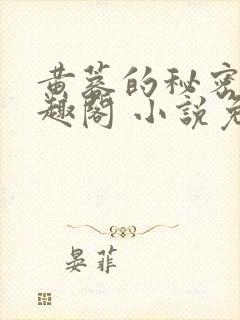 黄蓉的秘密
趣閣 小說免
晏菲